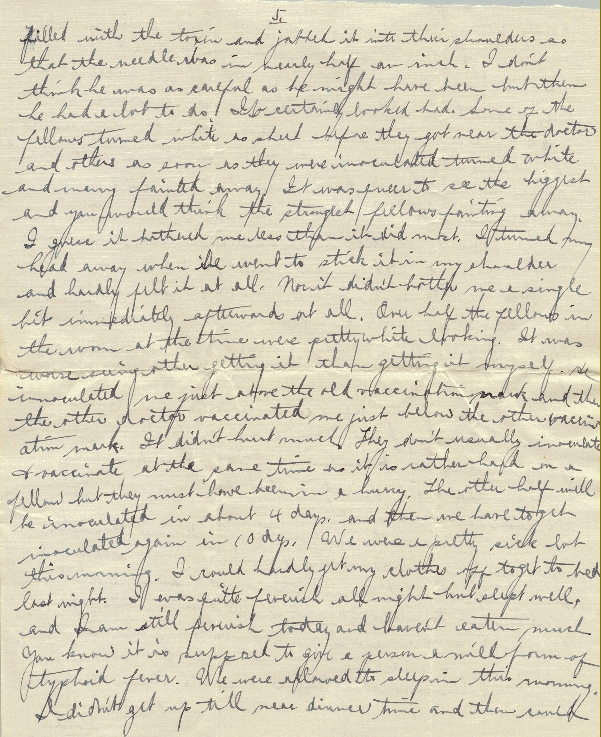 5.
filled with the toxin and jabbed it into their shoulders so
that the needle was in nearly half an inch. I don't
think he was as careful as he might have been but then
he had a lot to do. It certainly looked bad. Some of the
fellows turned white as sheet before they got near the doctor
and others as soon as they were inoculated turned white
and many fainted away. It was queer to see the biggest
and you would think the strongest fellows fainting away.
I guess it bothered me less than it did most. I turned my
head away when he went to stick it in my shoulder
and hardly felt it at all. Nor it didn't bother me a single
bit immediately afterwards at all. Over half the fellows in
the room at the time were pretty white looking. It was
worse seeing others getting it than getting it myself. He
innoculated me just above the old vaccination mark and then
the other doctor vaccinated me just below the other vaccin-
ation mark. It didn't hurt much. They don't usually inoculate
& vaccinate at the same time as it is rather hard on a
fellow but they must have been in a hurry. The other half will
be inoculated in about 4 days. and then we have to get
inoculated again in 10 days. We were a pretty sick lot
this morning. I could hardly get my clothes off to get to bed
last night. I was quite feverish all night but slept well,
and I am still feverish today and haven't eaten much
You know it is supposed to give a person a mild form of
typhoid fever. We were allowed to sleep in this morning.
I didn't get up till near dinner time and then